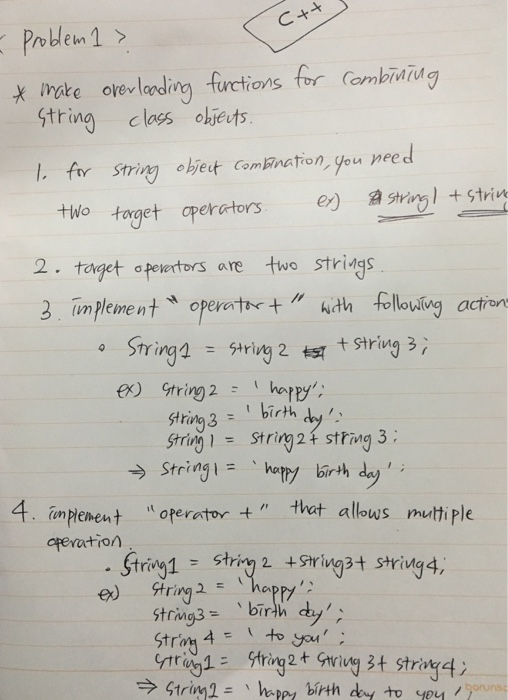 C++
< Problem 1 >
* make overloading functions for combining
string class objects.
1. for string object combination, you need
two target operators. ex) string1 + strin
2. target operators are two strings.
3. implement "operator +" with following action
• String1 = string2 + string3;
ex) string2 = 'happy';
string3 = 'birth day';
string1 = string2 + string3;
⇒ String1 = 'happy birth day';
4. implement "operator +" that allows multiple
operation.
• String1 = string2 + string3 + string4;
ex) string2 = 'happy';
string3 = 'birth day';
string4 = 'to you';
string1 = string2 + string3 + string4;
⇒ string2 = 'happy birth day to you';